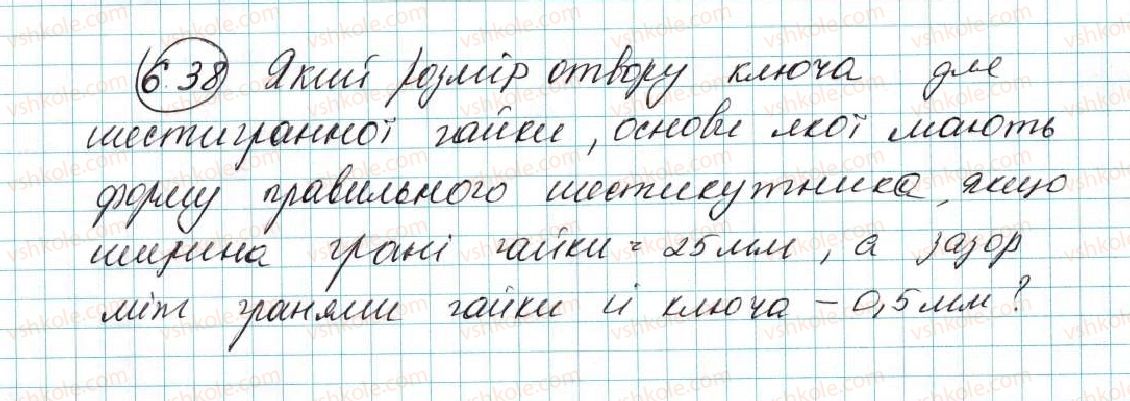 6.38 Який розмір отвору ключа для
шестигранної гайки, основи якої мають
форму правильного шестикутника, якщо
ширина грані гайки = 25мм, а зазор
між гранями гайки й ключа – 0,5мм?